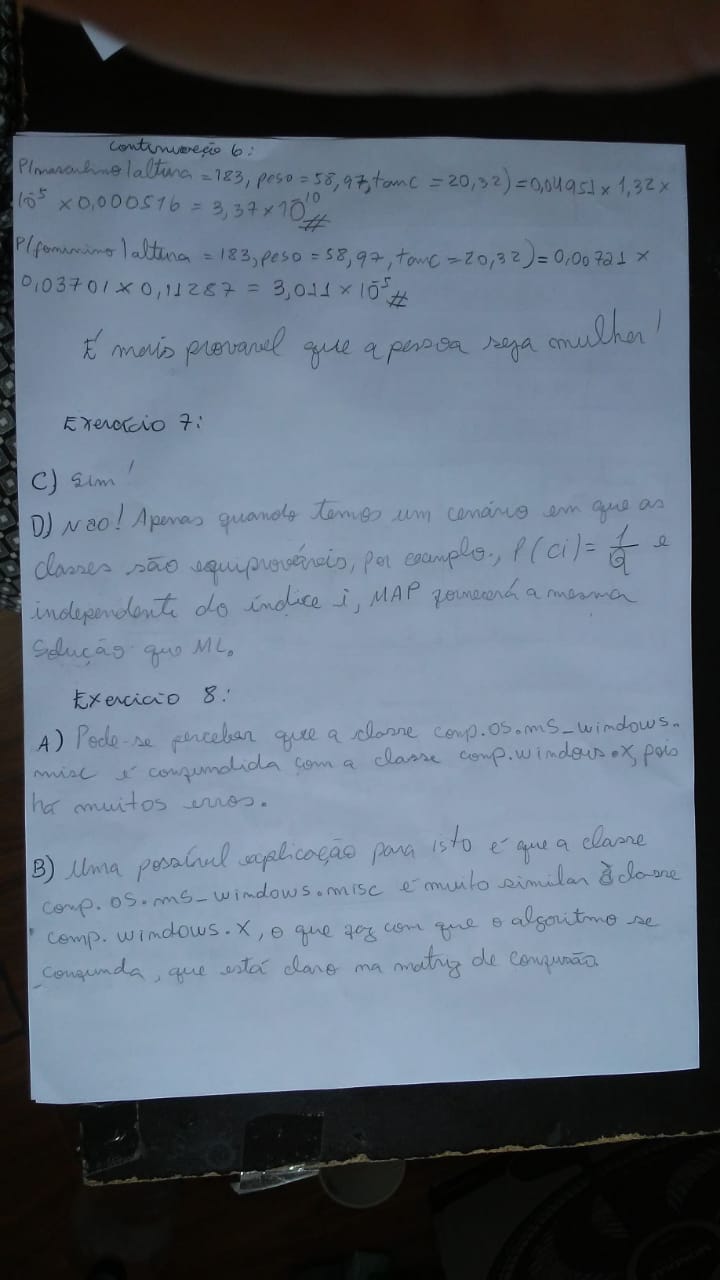 continuação 6:
P(masculino | altura = 183, peso = 58,97, tamc = 20,32) = 0,04951 x 1,32 x
10^-5 x 0,000516 = 3,37 x 10^-10 #
P(feminino | altura = 183, peso = 58,97, tamc = 20,32) = 0,00721 x
0,03701 x 0,11287 = 3,011 x 10^-5 #
É mais provavel que a pessoa seja mulher!
Exercício 7:
C) Sim!
D) Não! Apenas quando temos um cenário em que as
classes são equiprováveis, por exemplo, P(ci) = 1/Q e
independente do índice i, MAP fornecerá a mesma
solução que ML.
Exercicio 8:
A) Pode-se perceber que a classe comp.os.ms_windows.
misc é confundida com a classe comp.windows.x, pois
há muitos erros.
B) Uma possível explicação para isto é que a classe
comp.os.ms_windows.misc é muito similar à classe
comp.windows.x, o que faz com que o algoritmo se
confunda, que está claro na matriz de confusão.